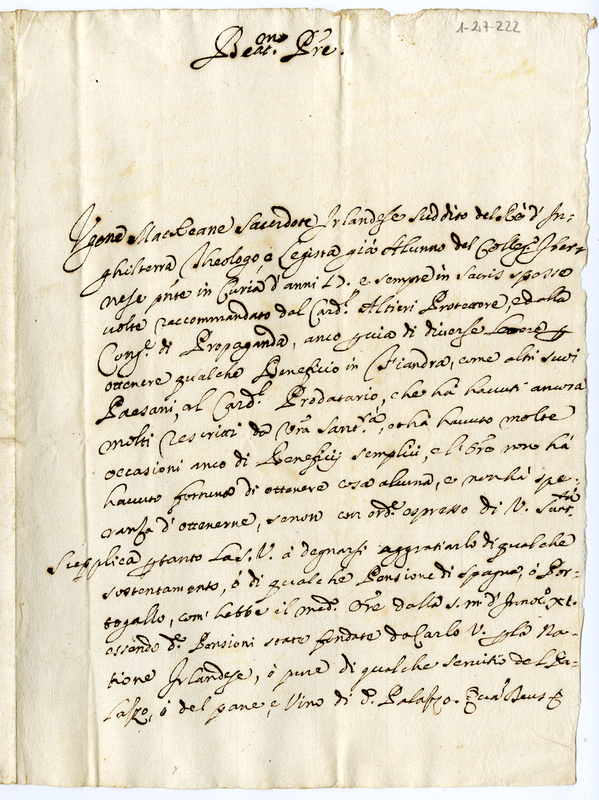 1-27-222
Beat.mo Pre.
Ugone MacKeane Sacerdote Irlandese suddito del Ré d'In-
ghilterra Theologo, e Legista già Alunno del Colleg.o Iber-
nese pñte in Curia d'anni e sempre in sacris spesso
volte raccommandato dal Card.l Altieri Protettore, e dalla
Cong.e di Propaganda, anco guia di diverse
ottenere qualche Beneficio in Fiandra, come altri suoi
Paesani, al Card.l Prodatario, che hà havuti ancora
molti rescritti da Vrã Sant.tà, et hà havuto molte
occasioni anco di Beneficij semplici, e l'Ore non hà
havuto fortuna di ottenere cosa alcuna, e non hà spe-
ranza d'ottenerne, senon con ord.e espresso di V. Sant.tà
Supplica ptanto la S. V. à degnarsi aggratiarlo di qualche
sostentamento, ó di qualche Pensione di Spagna, ó Por-
togallo, com' hebbe il med.o Ore dalla s. m. d'Innoc.o XI.
essendo d.e Pensioni state fondate da Carlo V. p la Na-
tione Irlandese, ó pure di qualche servitio del Pa-
lazzo, ó del pane, e Vino di d.o Palazzo. Quã Deus &